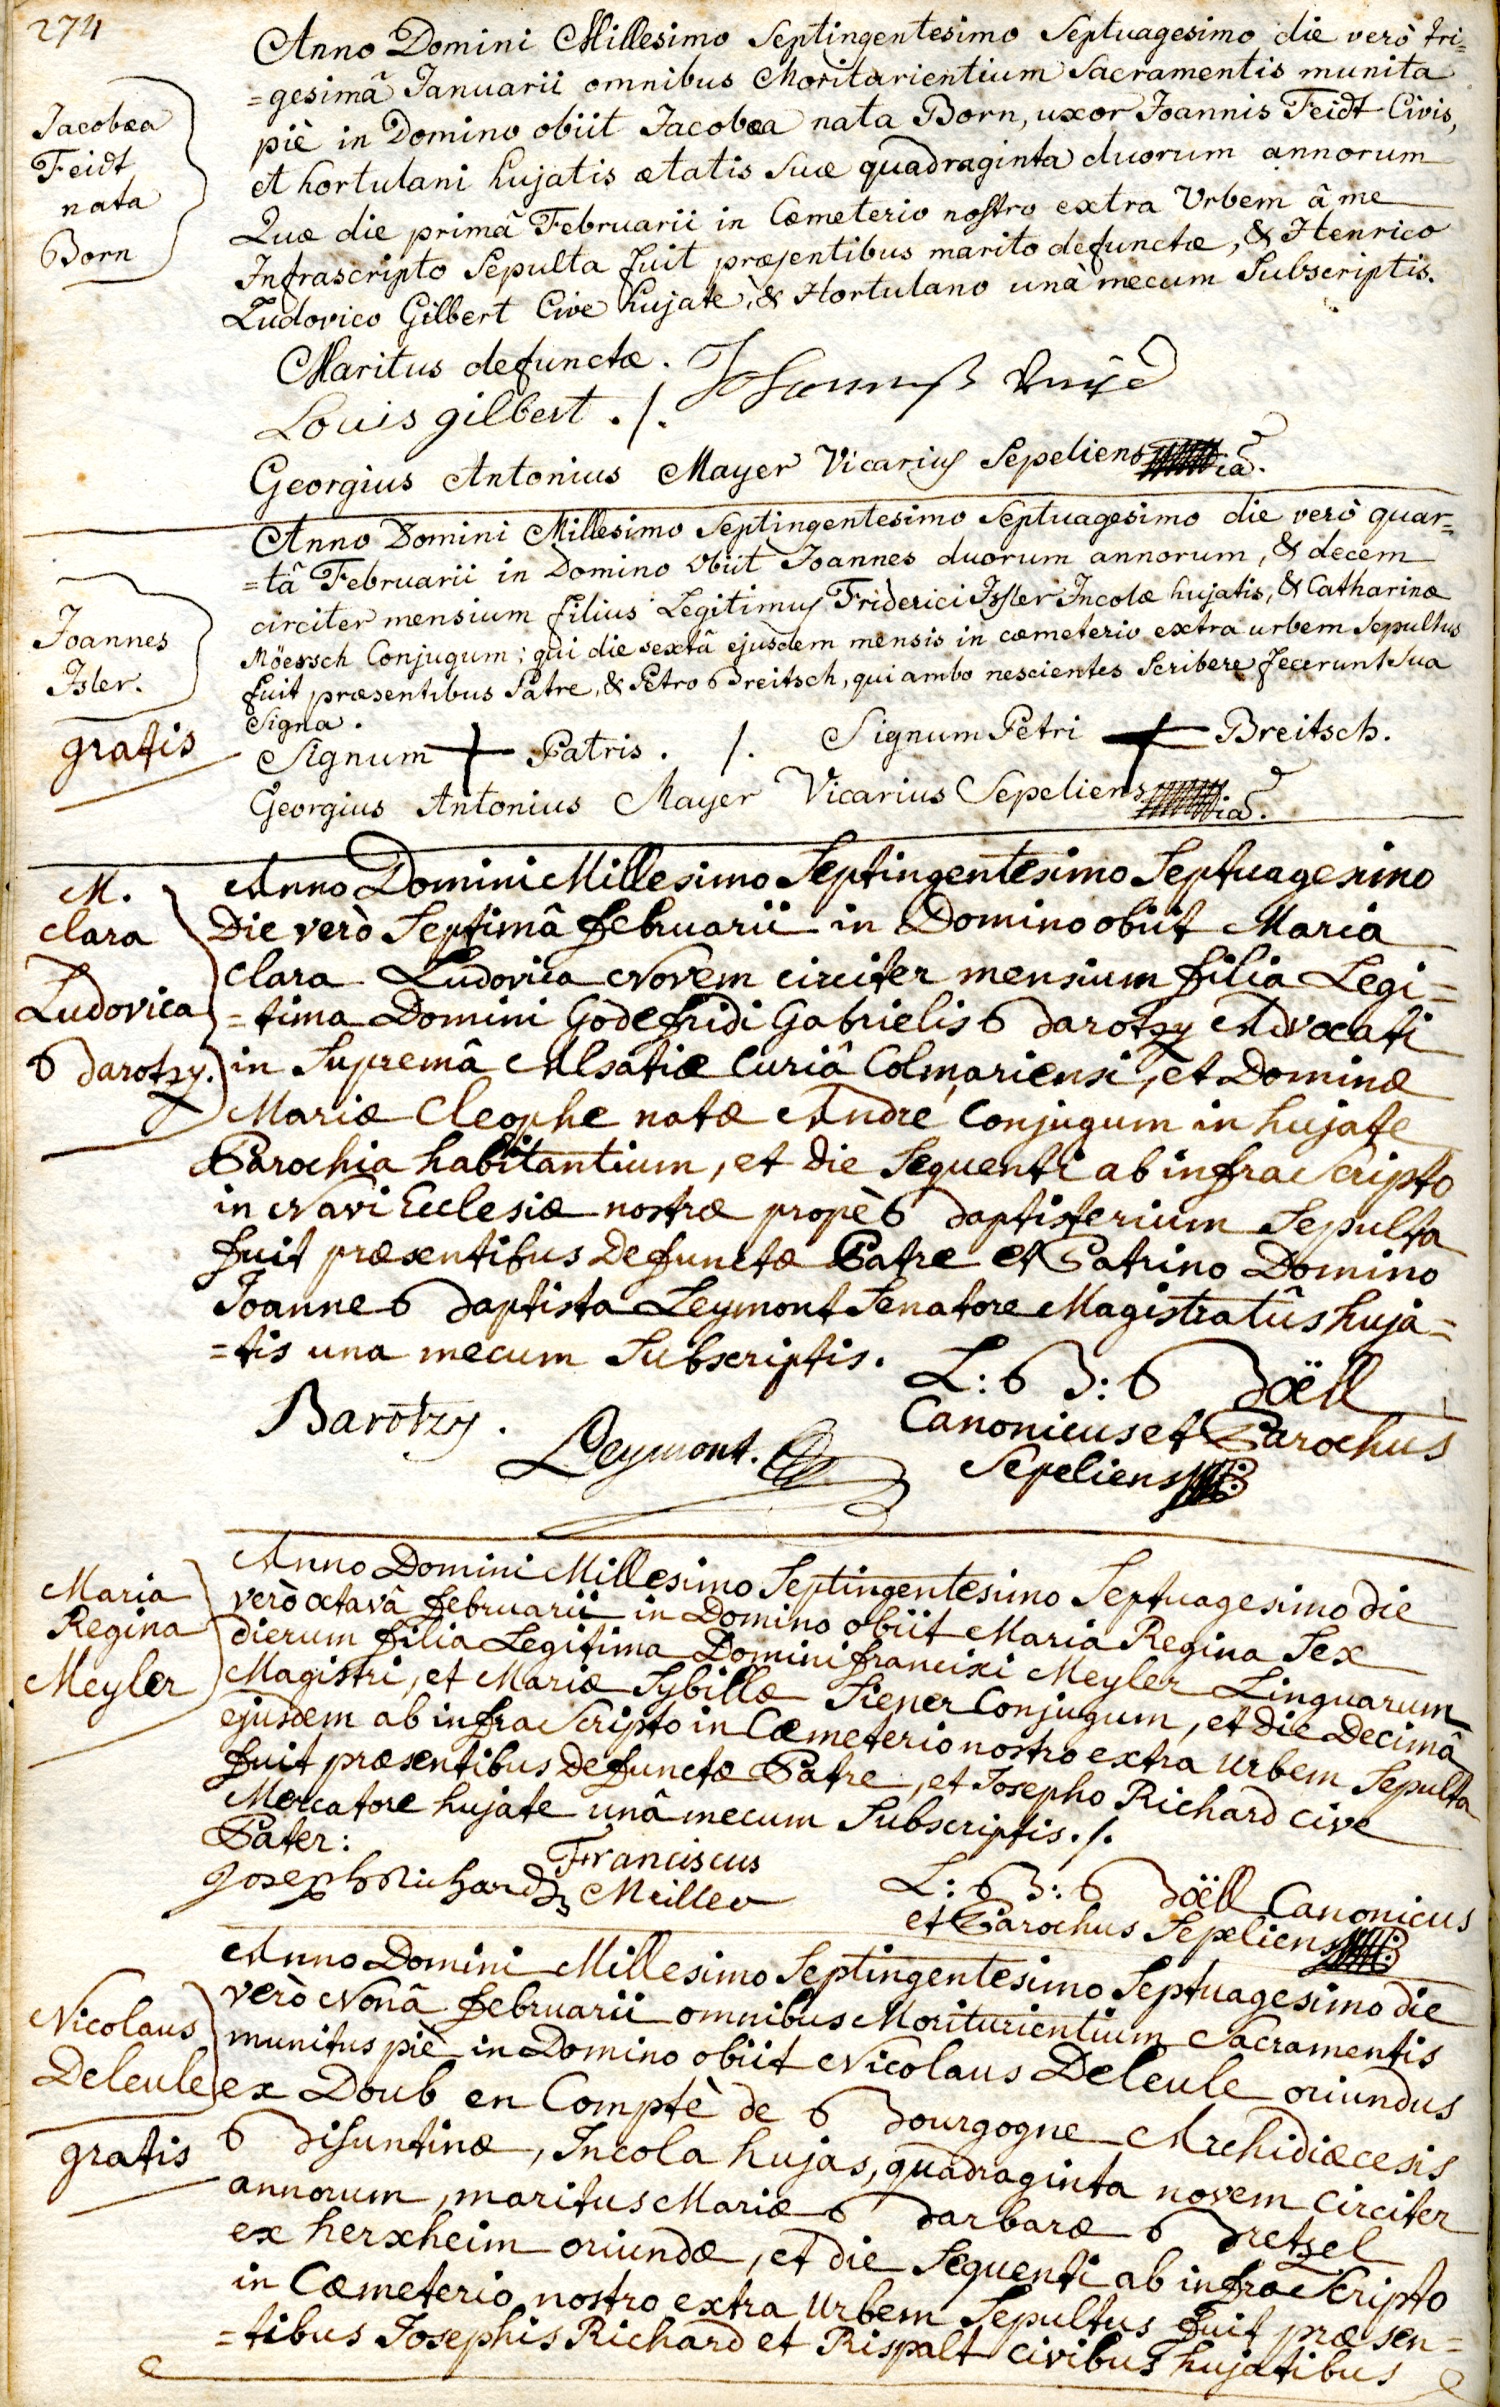 274
Jacobæa
Feidt
nata
Born
Anno Domini Millesimo Septingentesimo Septuagesimo die verò tri=
=gesimâ Januarii omnibus Moriturientium Sacramentis munita
piè in Domino obiit Jacobæa nata Born, uxor Joannis Feidt Civis,
et hortulani hujatis ætatis suæ quadraginta duorum annorum
Quæ die primâ Februarii in Cœmeterio nostro extra Urbem â me
Infrascripto Sepulta fuit præsentibus marito defunctæ, & Henrico
Ludovico Gilbert Cive hujate, & Hortulano unà mecum Subscriptis.
Maritus defunctæ. Johannes
Louis gilbert ./.
Georgius Antonius Mayer Vicarius Sepeliens
Joannes
Isler.
gratis
Anno Domini Millesimo Septingentesimo Septuagesimo die verò quar=
=tâ Februarii in Domino Obiit Joannes duorum annorum, & decem
circiter mensium filius Legitimus Friderici Issler Incolæ hujatis, & Catharinæ
Möersch Conjugum; qui die sextâ ejusdem mensis in cœmeterio extra urbem Sepultus
fuit præsentibus Patre, & Petro Breitsch, qui ambo nescientes Scribere fecerunt Sua
Signa.
Signum + Patris. ./. Signum Petri + Breitsch.
Georgius Antonius Mayer Vicarius Sepeliens
M.
Clara
Ludovica
Barotzy.
Anno Domini Millesimo Septingentesimo Septuagesimo
Die verò Septimâ februarii in Domino obiit Maria
Clara Ludovica Novem circiter mensium filia Legi=
=tima Domini Godefridi Gabrielis Barotzy Advocati
in Supremâ Alsatiæ Curiâ Colmariensi, et Dominæ
Mariæ Cleophe natæ André Conjugum in hujate
Parochia habitantium, et die Sequenti ab infra Scripto
in Navi Ecclesiæ nostræ propè Baptisterium Sepulta
fuit præsentibus Defunctæ Patre et Patrino Domino
Joanne Baptista Leymont Senatore Magistratûs huja=
=tis una mecum Subscriptis.
Barotzy.
Leymont.
L: B: Boëll
Canonicus et Parochus
Sepeliens
Maria
Regina
Meyler
Anno Domini Millesimo Septingentesimo Septuagesimo die
verò octavâ februarii in Domino obiit Maria Regina Sex
dierum filia Legitima Domini francisci Meyler Linguarum
Magistri, et Mariæ Sybillæ Siener Conjugum, et die Decimâ
ejusdem ab infra Scripto in Cœmeterio nostro extra Urbem Sepulta
fuit præsentibus Defunctæ Patre, et Josepho Richard cive
Mercatore hujate unâ mecum Subscriptis ./.
Pater:
Franciscus
Meiller
Joseph Richard
L: B: Boëll Canonicus
et Parochus Sepeliens
Nicolaus
Deleule
gratis
Anno Domini Millesimo Septingentesimo Septuagesimo die
verò Nonâ februarii omnibus Moriturientium Sacramentis
munitus piè in Domino obiit Nicolaus Deleule oriundus
ex Doub en Comptè de Bourgogne Archidiæcesis
Bisuntinæ, Incola hujas, quadraginta novem Circiter
annorum, maritus Mariæ Barbaræ Bretzel
ex herxheim oriundæ, et die Sequenti ab infra Scripto
in Cœmeterio nostro extra Urbem Sepultus fuit præsen=
=tibus Josephis Richard et Rispalt Civibus hujatibus